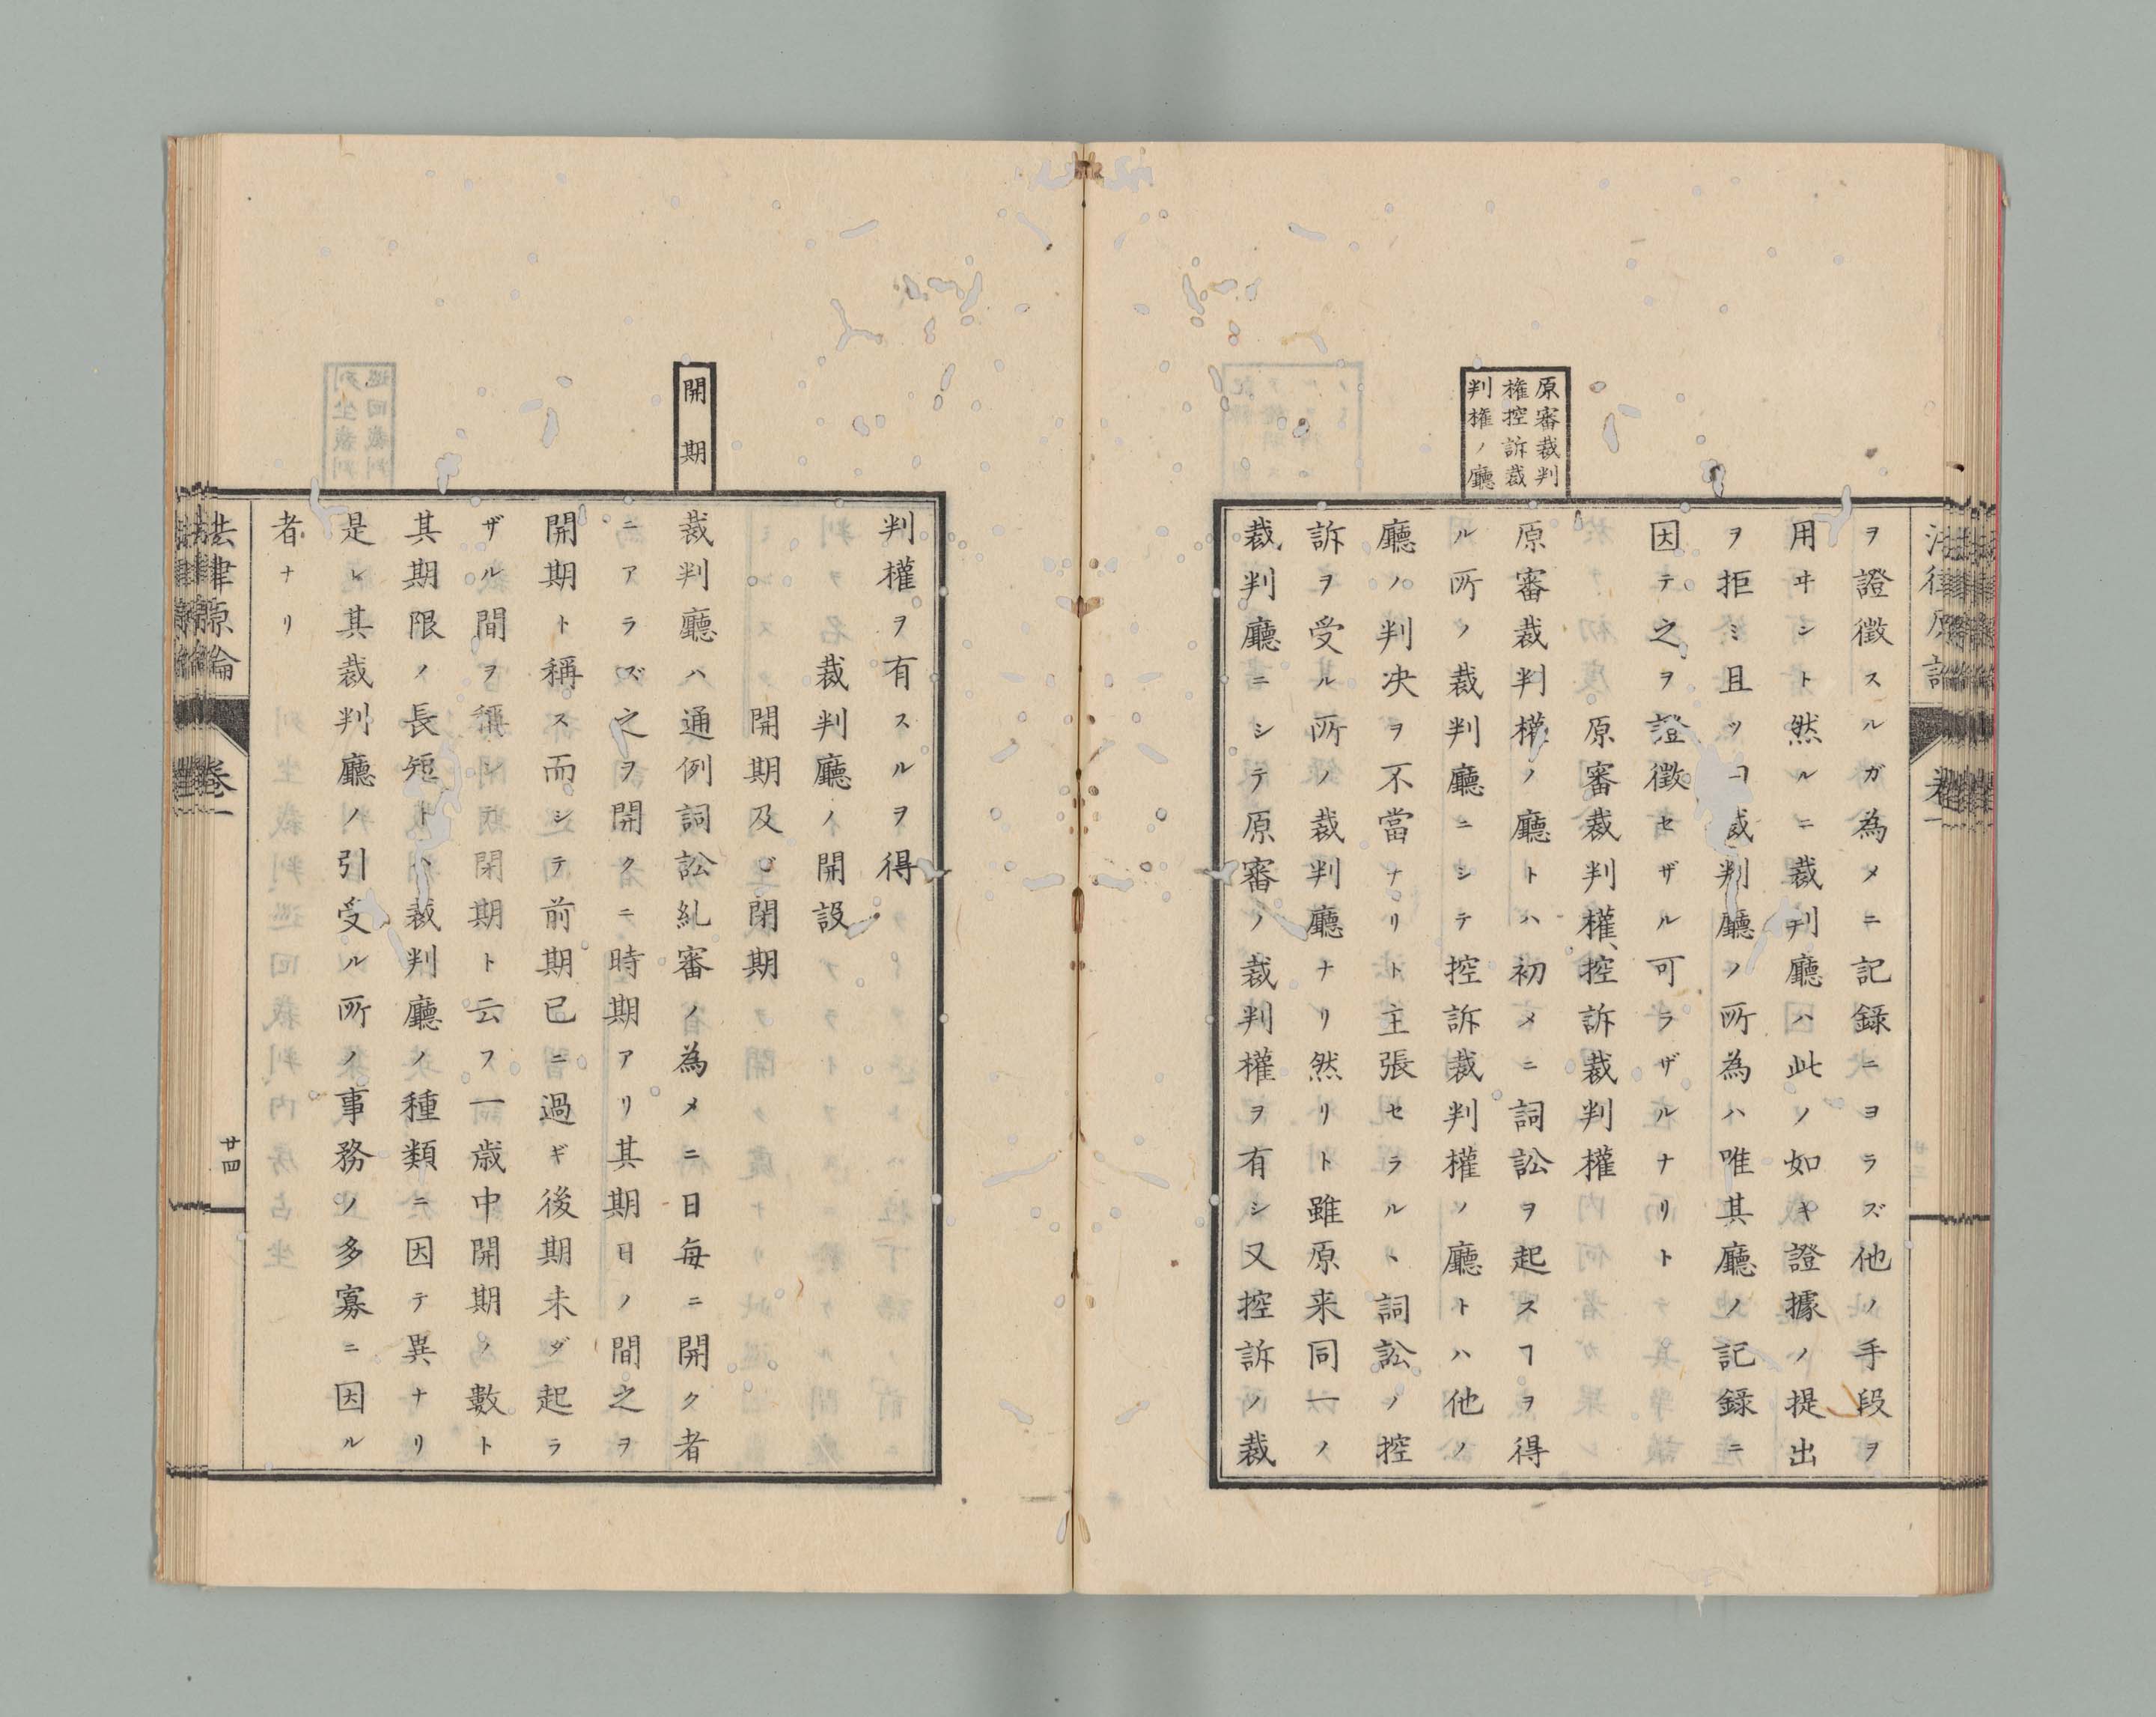 原審裁判
権控訴裁
判権ノ廳
ヲ證徴スルガ為メニ記録ニヨラズ他ノ手段ヲ
用ヰシト然ルニ裁判廳ハ此ノ如キ證據ノ提出
ヲ拒ミ且ツヿ裁判廳ノ所為ハ唯其廳ノ記録ニ
因テ之ヲ證徴セザル可ラザルナリト
原審裁判權、控訴裁判權
原審裁判權ノ廳トハ初メニ詞訟ヲ起スヿヲ得
ル所ノ裁判廳ニシテ控訴裁判權ノ廳トハ他ノ
廳ノ判决ヲ不當ナリト主張セラルヽ詞訟ノ控
訴ヲ受ル所ノ裁判廳ナリ然リト雖原来同一ノ
裁判廳ニシテ原審ノ裁判權ヲ有シ又控訴ノ裁
開期
判權ヲ有スルヲ得
裁判廳ノ開設
開期及ビ閉期
裁判廳ハ通例詞訟糺審ノ為メニ日毎ニ開ク者
ニアラズ之ヲ開クニ時期アリ其期日ノ間之ヲ
開期ト稱ス而シテ前期已ニ過ギ後期未ダ起ラ
ザル間ヲ稱シテ閉期ト云フ一歳中開期ノ數ト
其期限ノ長短トハ裁判廳ノ種類ニ因テ異ナリ
是レ其裁判廳ノ引受ル所ノ事務ノ多寡ニ因ル
者ナリ
法律原論
巻一
廿四